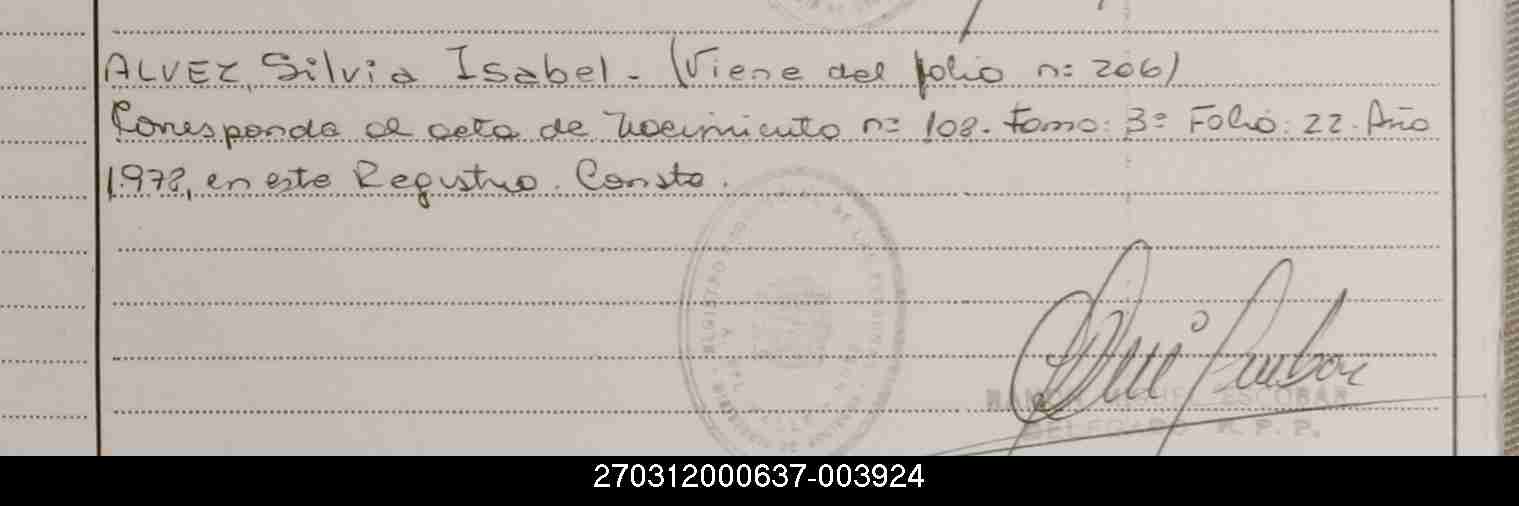 ALVEZ, Silvia Isabel. (Viene del folio nº 206)
Corresponde al acta de Nacimiento nº 108. Tomo: 3º Folio: 22. Año
1.978, en este Registro. Conste.
ESCOBAR
DELEGADO R. P. P.
270312000637-003924